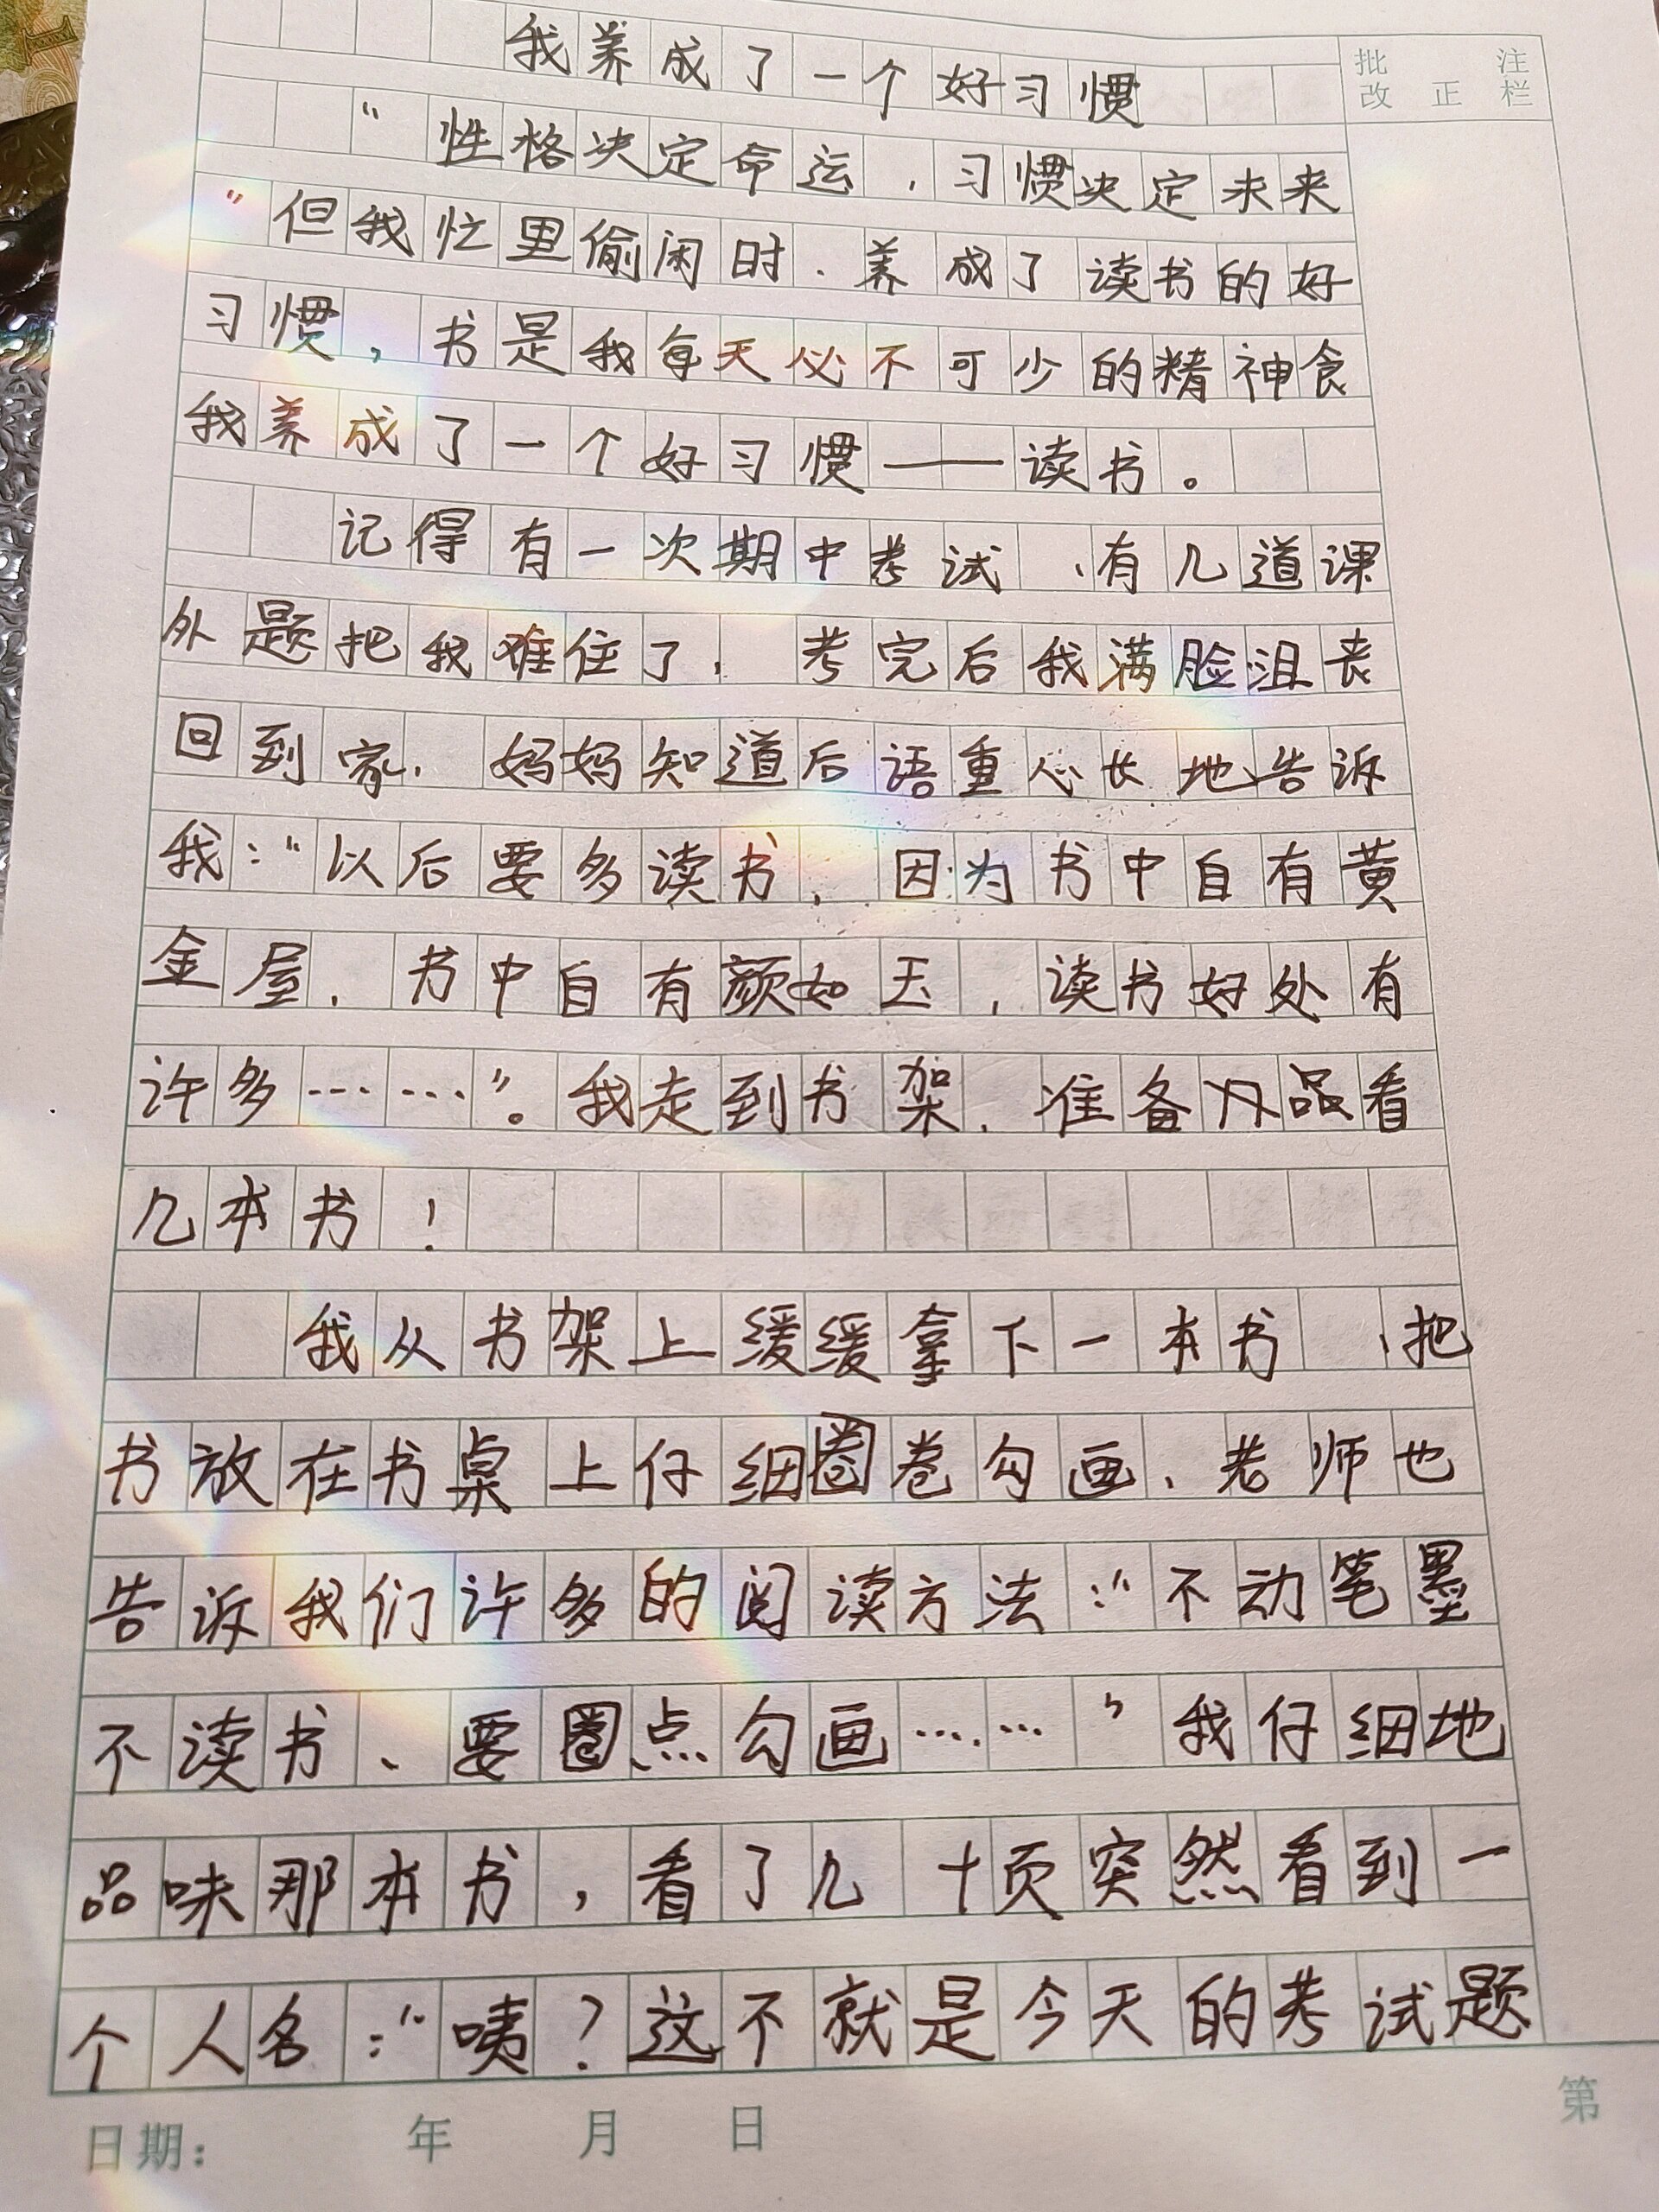 我养成了一个好习惯
批 注
改 正 栏
“性格决定命运，习惯决定未来
”但我忙里偷闲时，养成了读书的好
习惯，书是我每天必不可少的精神食
我养成了一个好习惯——读书。
记得有一次期中考试，有几道课
外题把我难住了，考完后我满脸沮丧
回到家，妈妈知道后语重心长地告诉
我：“以后要多读书，因为书中自有黄
金屋，书中自有颜如玉，读书好处有
许多……”。我走到书架，准备品看
几本书！
我从书架上缓缓拿下一本书，把
书放在书桌上仔细圈卷勾画，老师也
告诉我们许多的阅读方法：“不动笔墨
不读书、要圈点勾画……”我仔细地
品味那本书，看了几十页突然看到一
个人名：“咦？这不就是今天的考试题
日期： 年 月 日
第